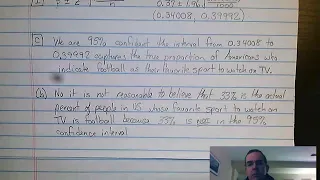 n
0.37 ± 1.96
1000
(0.34008, 0.39992)
(c) We are 95% confident the interval from 0.34008 to
0.39992 captures the true proportion of Americans who
indicate football as their favorite sport to watch on TV.
(d) No it is not reasonable to believe that 33% is the actual
percent of people in US whose favorite sport to watch on
TV is football because 33% is not in the 95%
confidence interval